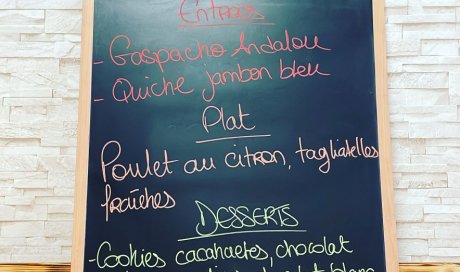 Entrées
- Gaspacho Andalou
- Quiche jambon bleu
Plat
Poulet au citron, tagliatelles
fraîches
DESSERTS
- Cookies cacahaetes, chocolat
blanc